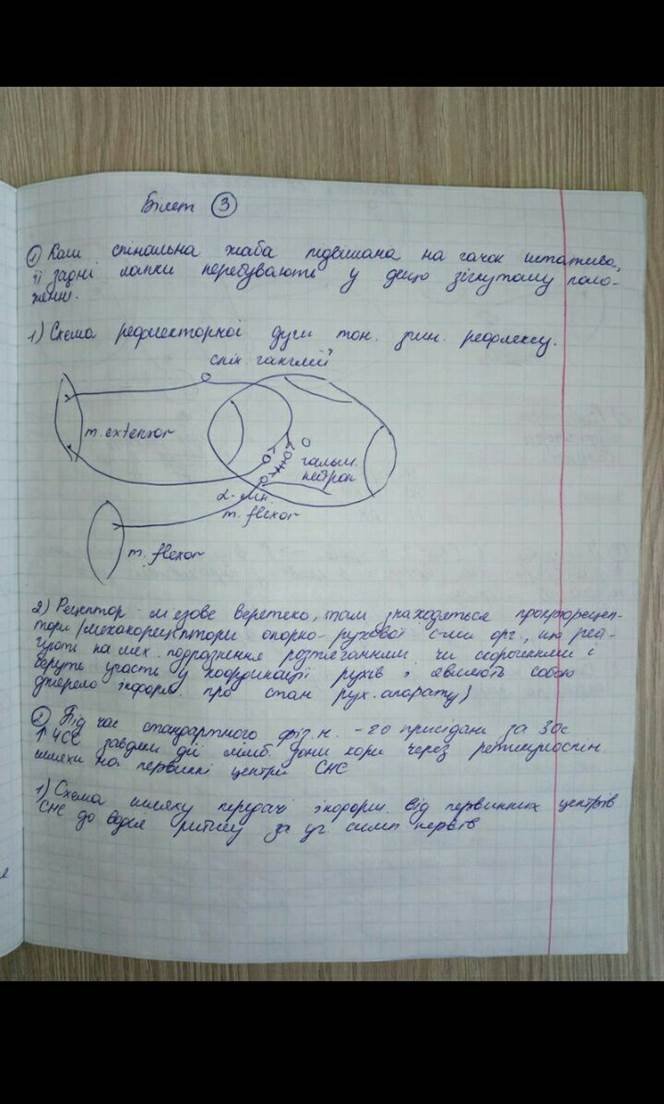 Білет 3
① Коли спінальна жаба підвішана на гачок штатива,
її задні лапки перебувають у дещо зігнутому поло-
женні.
1) Схема рефлекторної дуги тон. згин. рефлексу.
спін. ганглій
m. extensor
гальм.
нейрон
α-мн.
m. flexor
m. flexor
2) Рецептор - м'язове веретено, там знаходяться пропріорецеп-
тори (механорецептори опорно-рухової с-ми орг., що реа-
гують на мех. подразнення розтяганням чи скороченням і
беруть участь у координації рухів і являють собою
джерело інформ. про стан рух. апарату)
② Під час стандартного фіз. н. - 20 присідань за 30с
↑ЧСС завдяки дії лімб. зони кори через ретикулоспін.
шляхи на первинні центри СНС
1) Схема шляху передачі інформ. від первинних центрів
СНС до водія ритму за уч. симп нервів